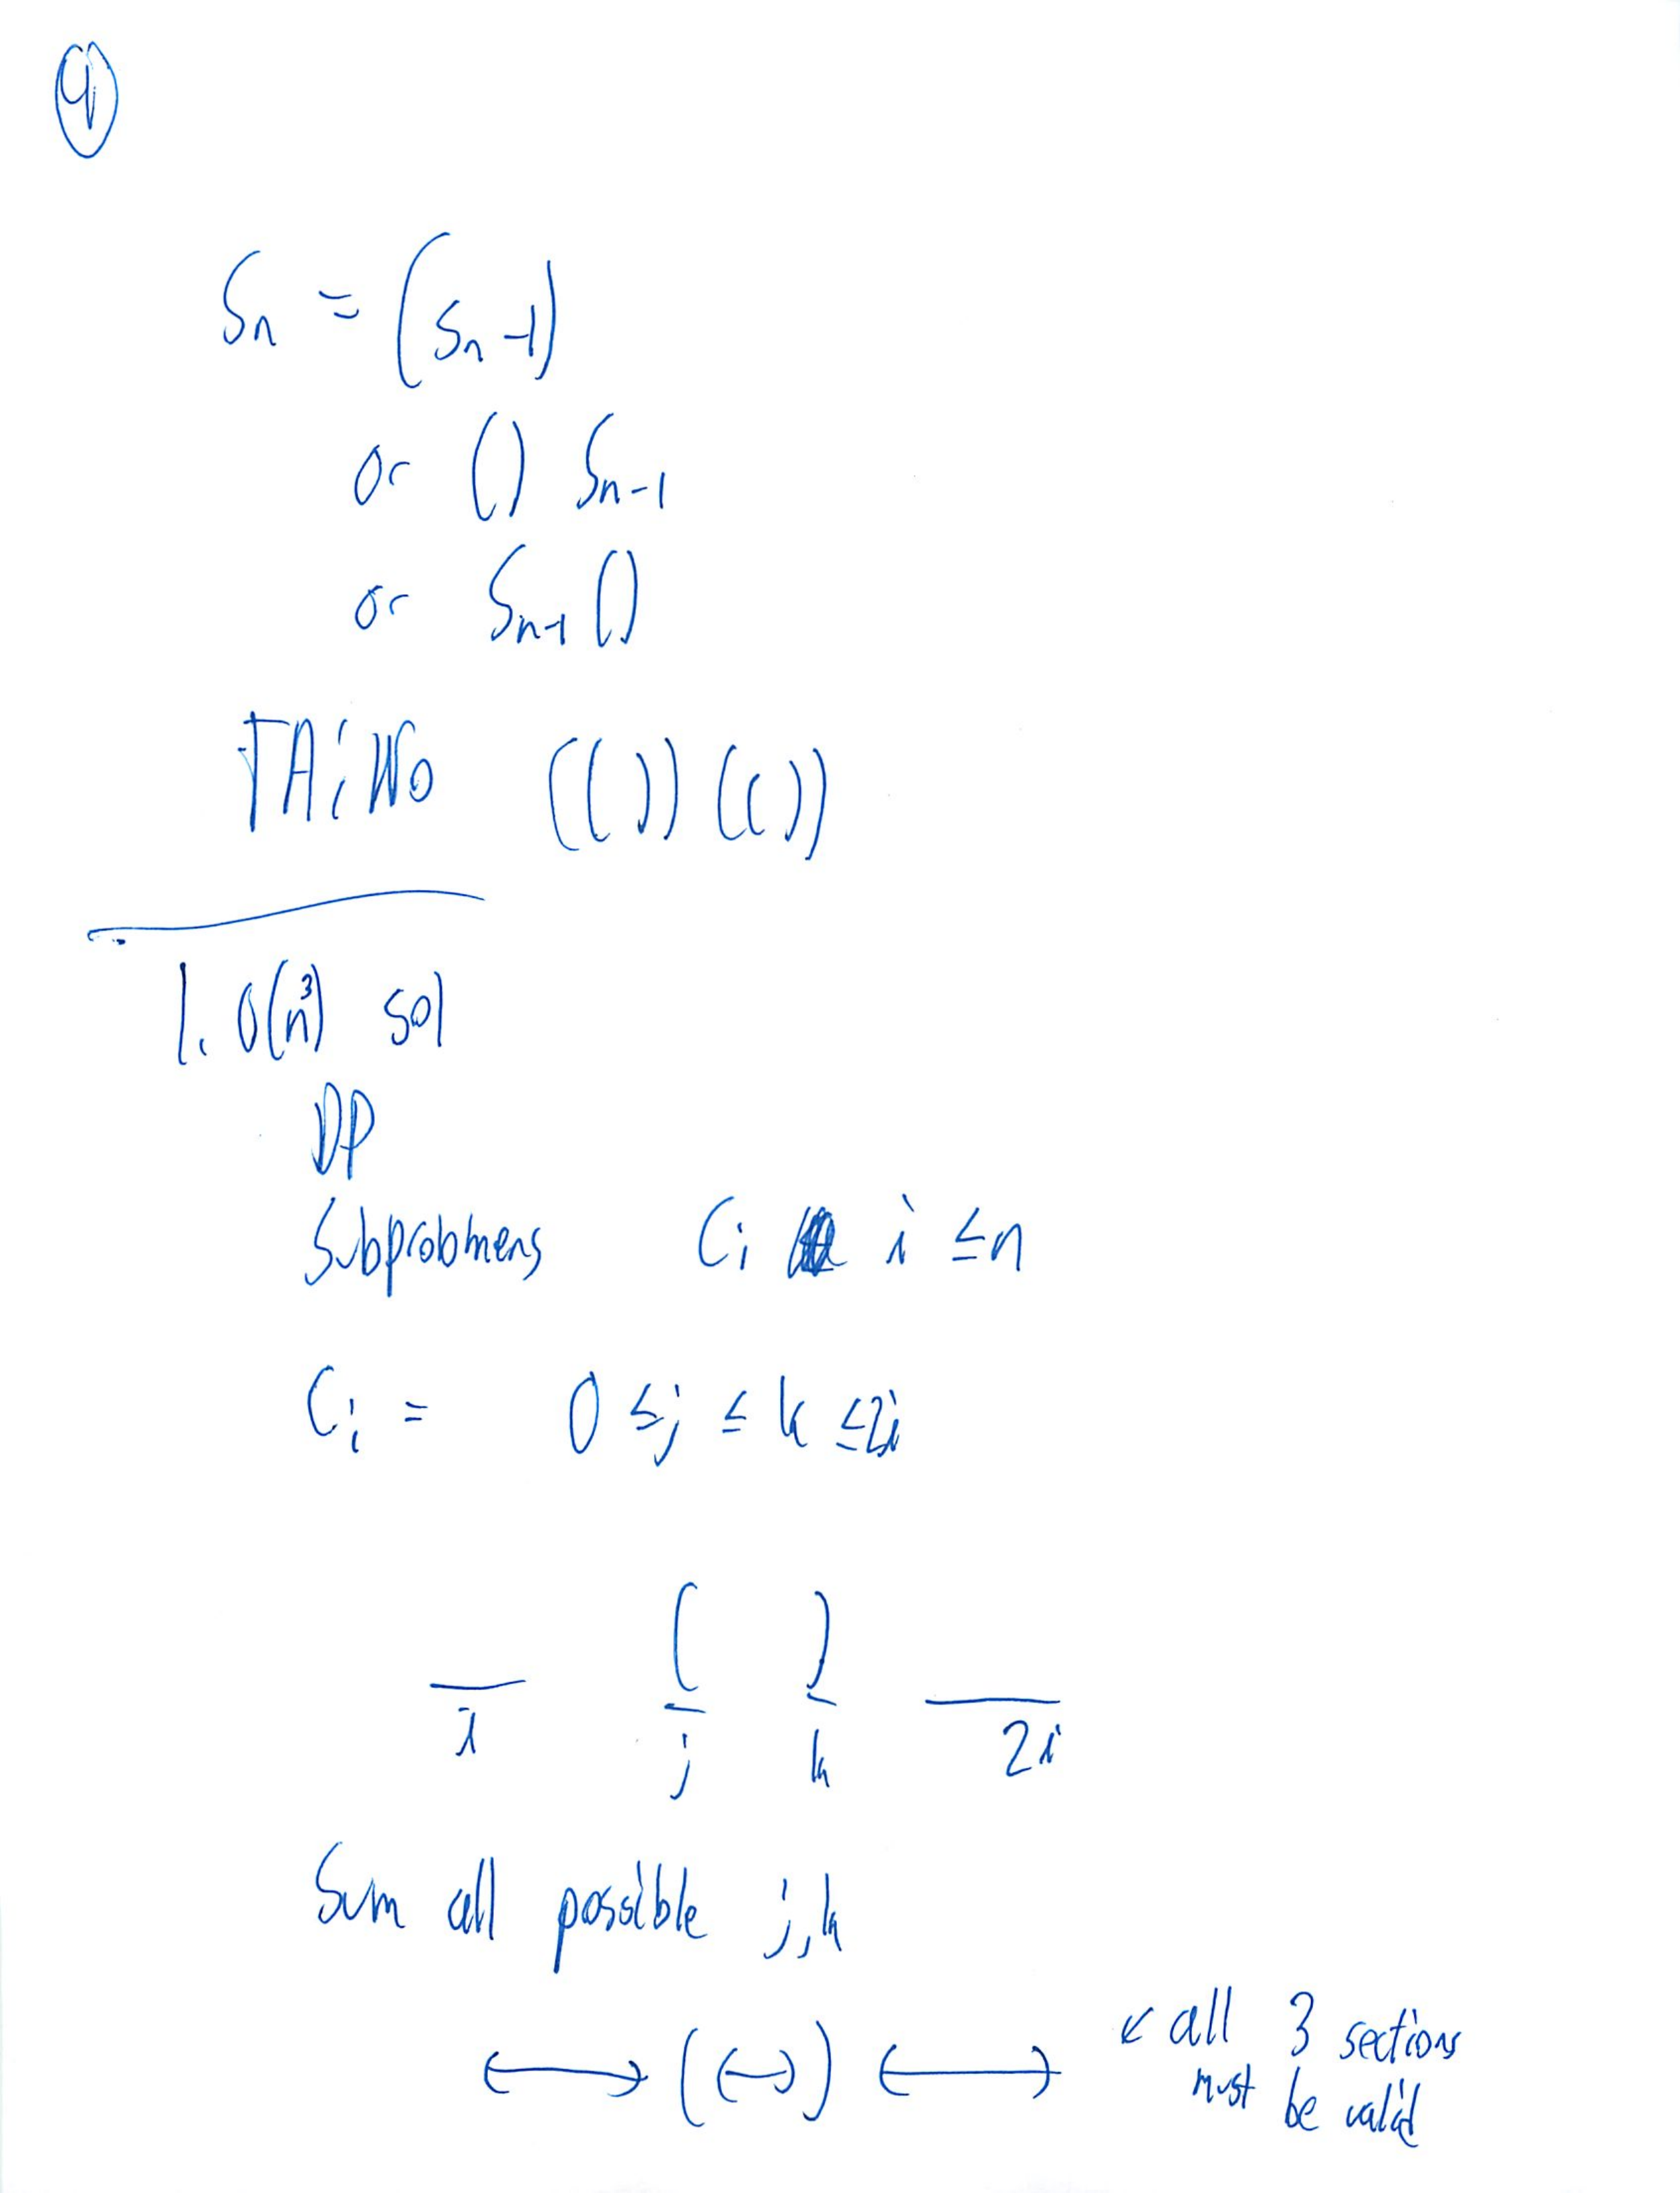 9
Sₙ = (Sₙ-1)
or () Sₙ₋₁
or Sₙ₋₁ ()
(())(())
1. O(n³) sol
DP
Subprobmens Cᵢ i ≤ n
Cᵢ = 0 ≤ j ≤ k ≤ 2i
( )
i j k 2i
Sum all possible j,k
↔ (↔) ↔ ↙ all 3 sections
must be valid